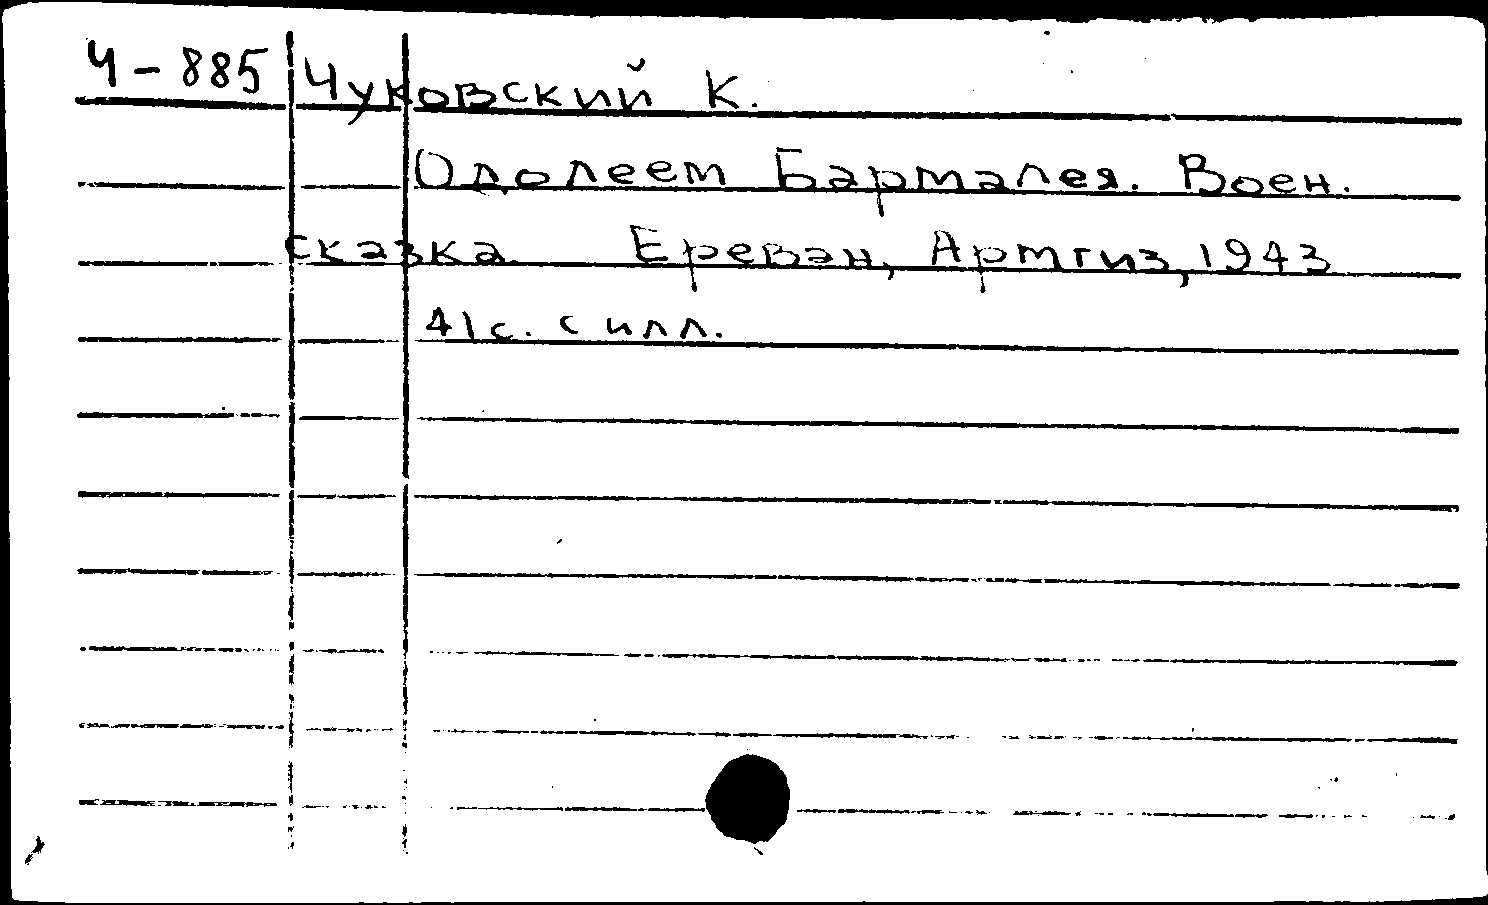 Ч-885 Чуковский К.
Одолеем Бармалея. Воен.
сказка Ереван, Армгиз, 1943
41с. с илл.